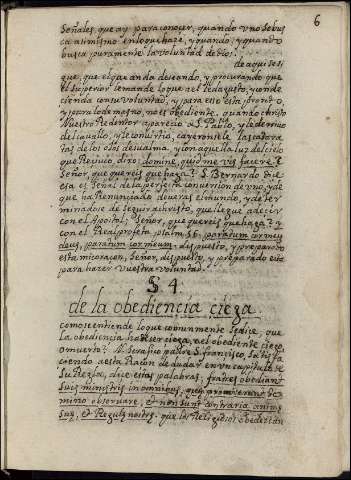 6
Señales, que ay para conocer, quando uno se bus
ca asi mismo en lo que haze, y quando, y quanto
busca puramente la voluntad de dios.
de aqui se si
gue, que el que anda deseando, y procurando que
el superior le mande lo que a el le da gusto, y conde
cienda con su voluntad, y para eso esta promto, o
y para lo demas no, no es obediente. quando christo
Nuestro Redentor aparecio a S. Pablo, y le derribo
del cauallo, y le convirtio, cayeronsele las catara
tas de los ojos de su alma, y con aquella luz del cielo
que Reciuio, dixo: domine, quid me vis facere?
Señor, que quereis que haga? S. Bernardo Dize
esa es señal de la perfecta conversion de uno, y de
que ha Renunciado de veras el mundo, y de ter
minadose de seguir a christo, que llegue a decir
con el Apostol: Señor, que quereis que haga? y
con el Real profeta psalm. 56. paratum cor meum
deus, paratum cor meum: dispuesto, y preparado
esta mi coraçon, Señor, dispuesto, y preparado esta
para hazer vuestra voluntad.
§ 4
de la obediencia ciega
como se entiende lo que comunmente se dice, que
la obediencia ha de ser ciega, y el obediente ciego,
o muerto? N. Serafico padre S. Francisco, satisfa
ciendo a esta Razon de dudar en un capitulo de
su Regla, dice estas palabras: fratres obediant
suis ministris in omnibus, que promiserunt Do
mino observare, et non sunt contraria anime
sue, et Regule nostre. que los Religiosos obedezcan